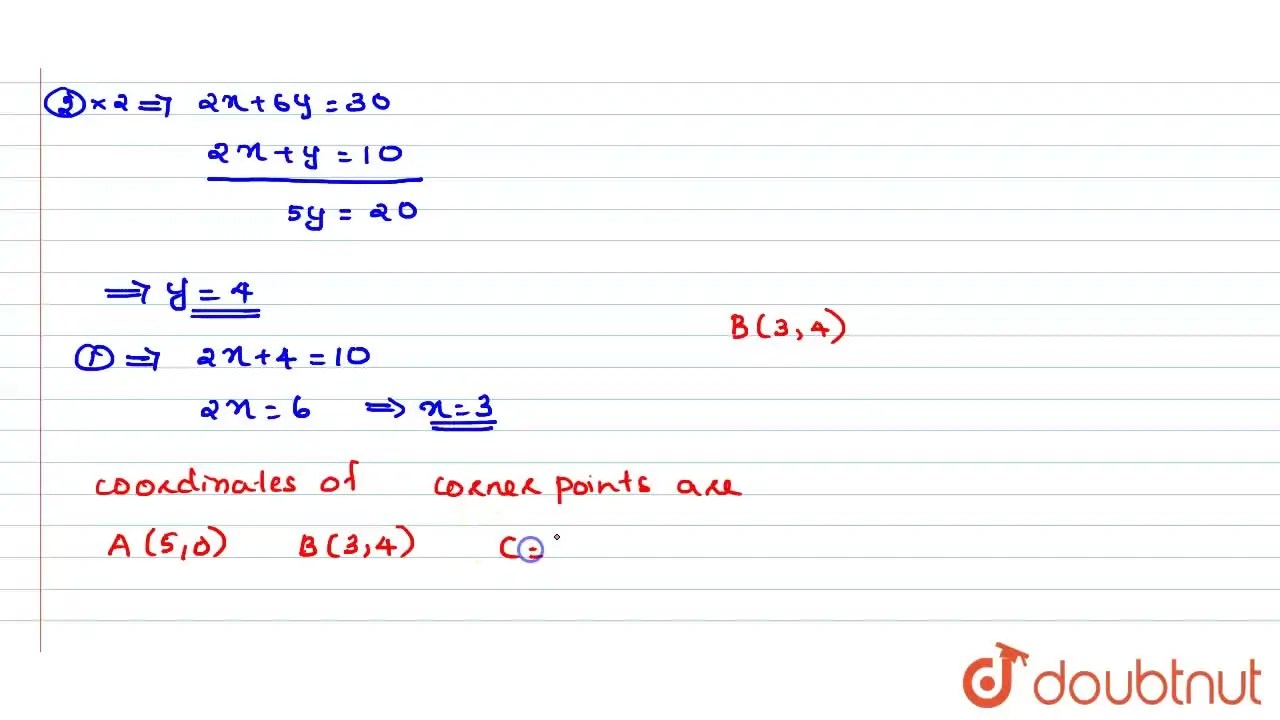 ② × 2 ⇒ 2x + 6y = 30
2x + y = 10
5y = 20
⇒ y = 4
B(3,4)
① ⇒ 2x + 4 = 10
2x = 6 ⇒ x = 3
coordinates of corner points are
A (5,0) B(3,4) C =
doubtnut